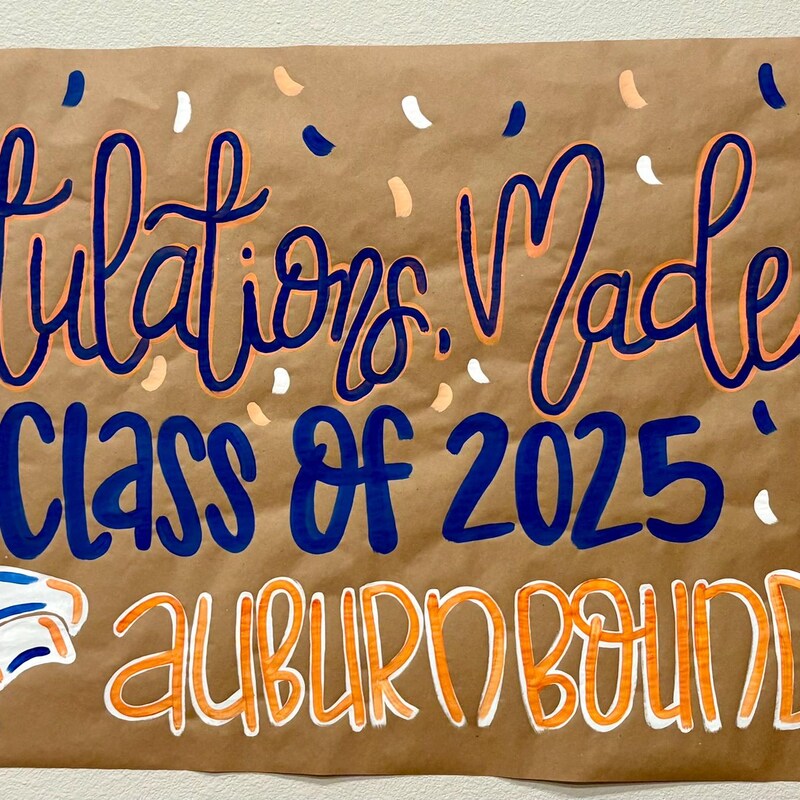 tulations, Made
Class of 2025
AUBURN BOUND